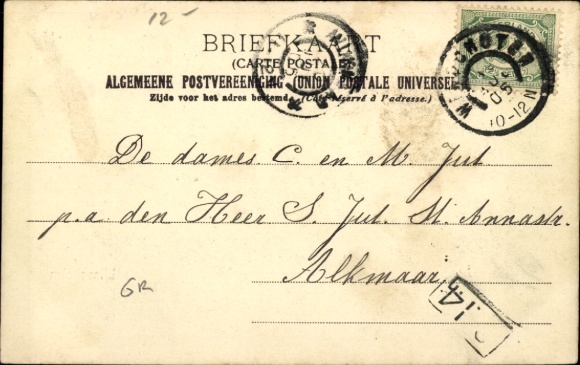 12-
BRIEFKAART
(CARTE POSTALE)
ALGEMEENE POSTVEREENIGING (UNION POSTALE UNIVERSELLE)
Zijde voor het adres bestemd. (Côté réservé à l'adresse.)
10-12 N
De dames C. en M. Jut
p.a den Heer S. Jut. St. Annastr.
Alkmaar
GR